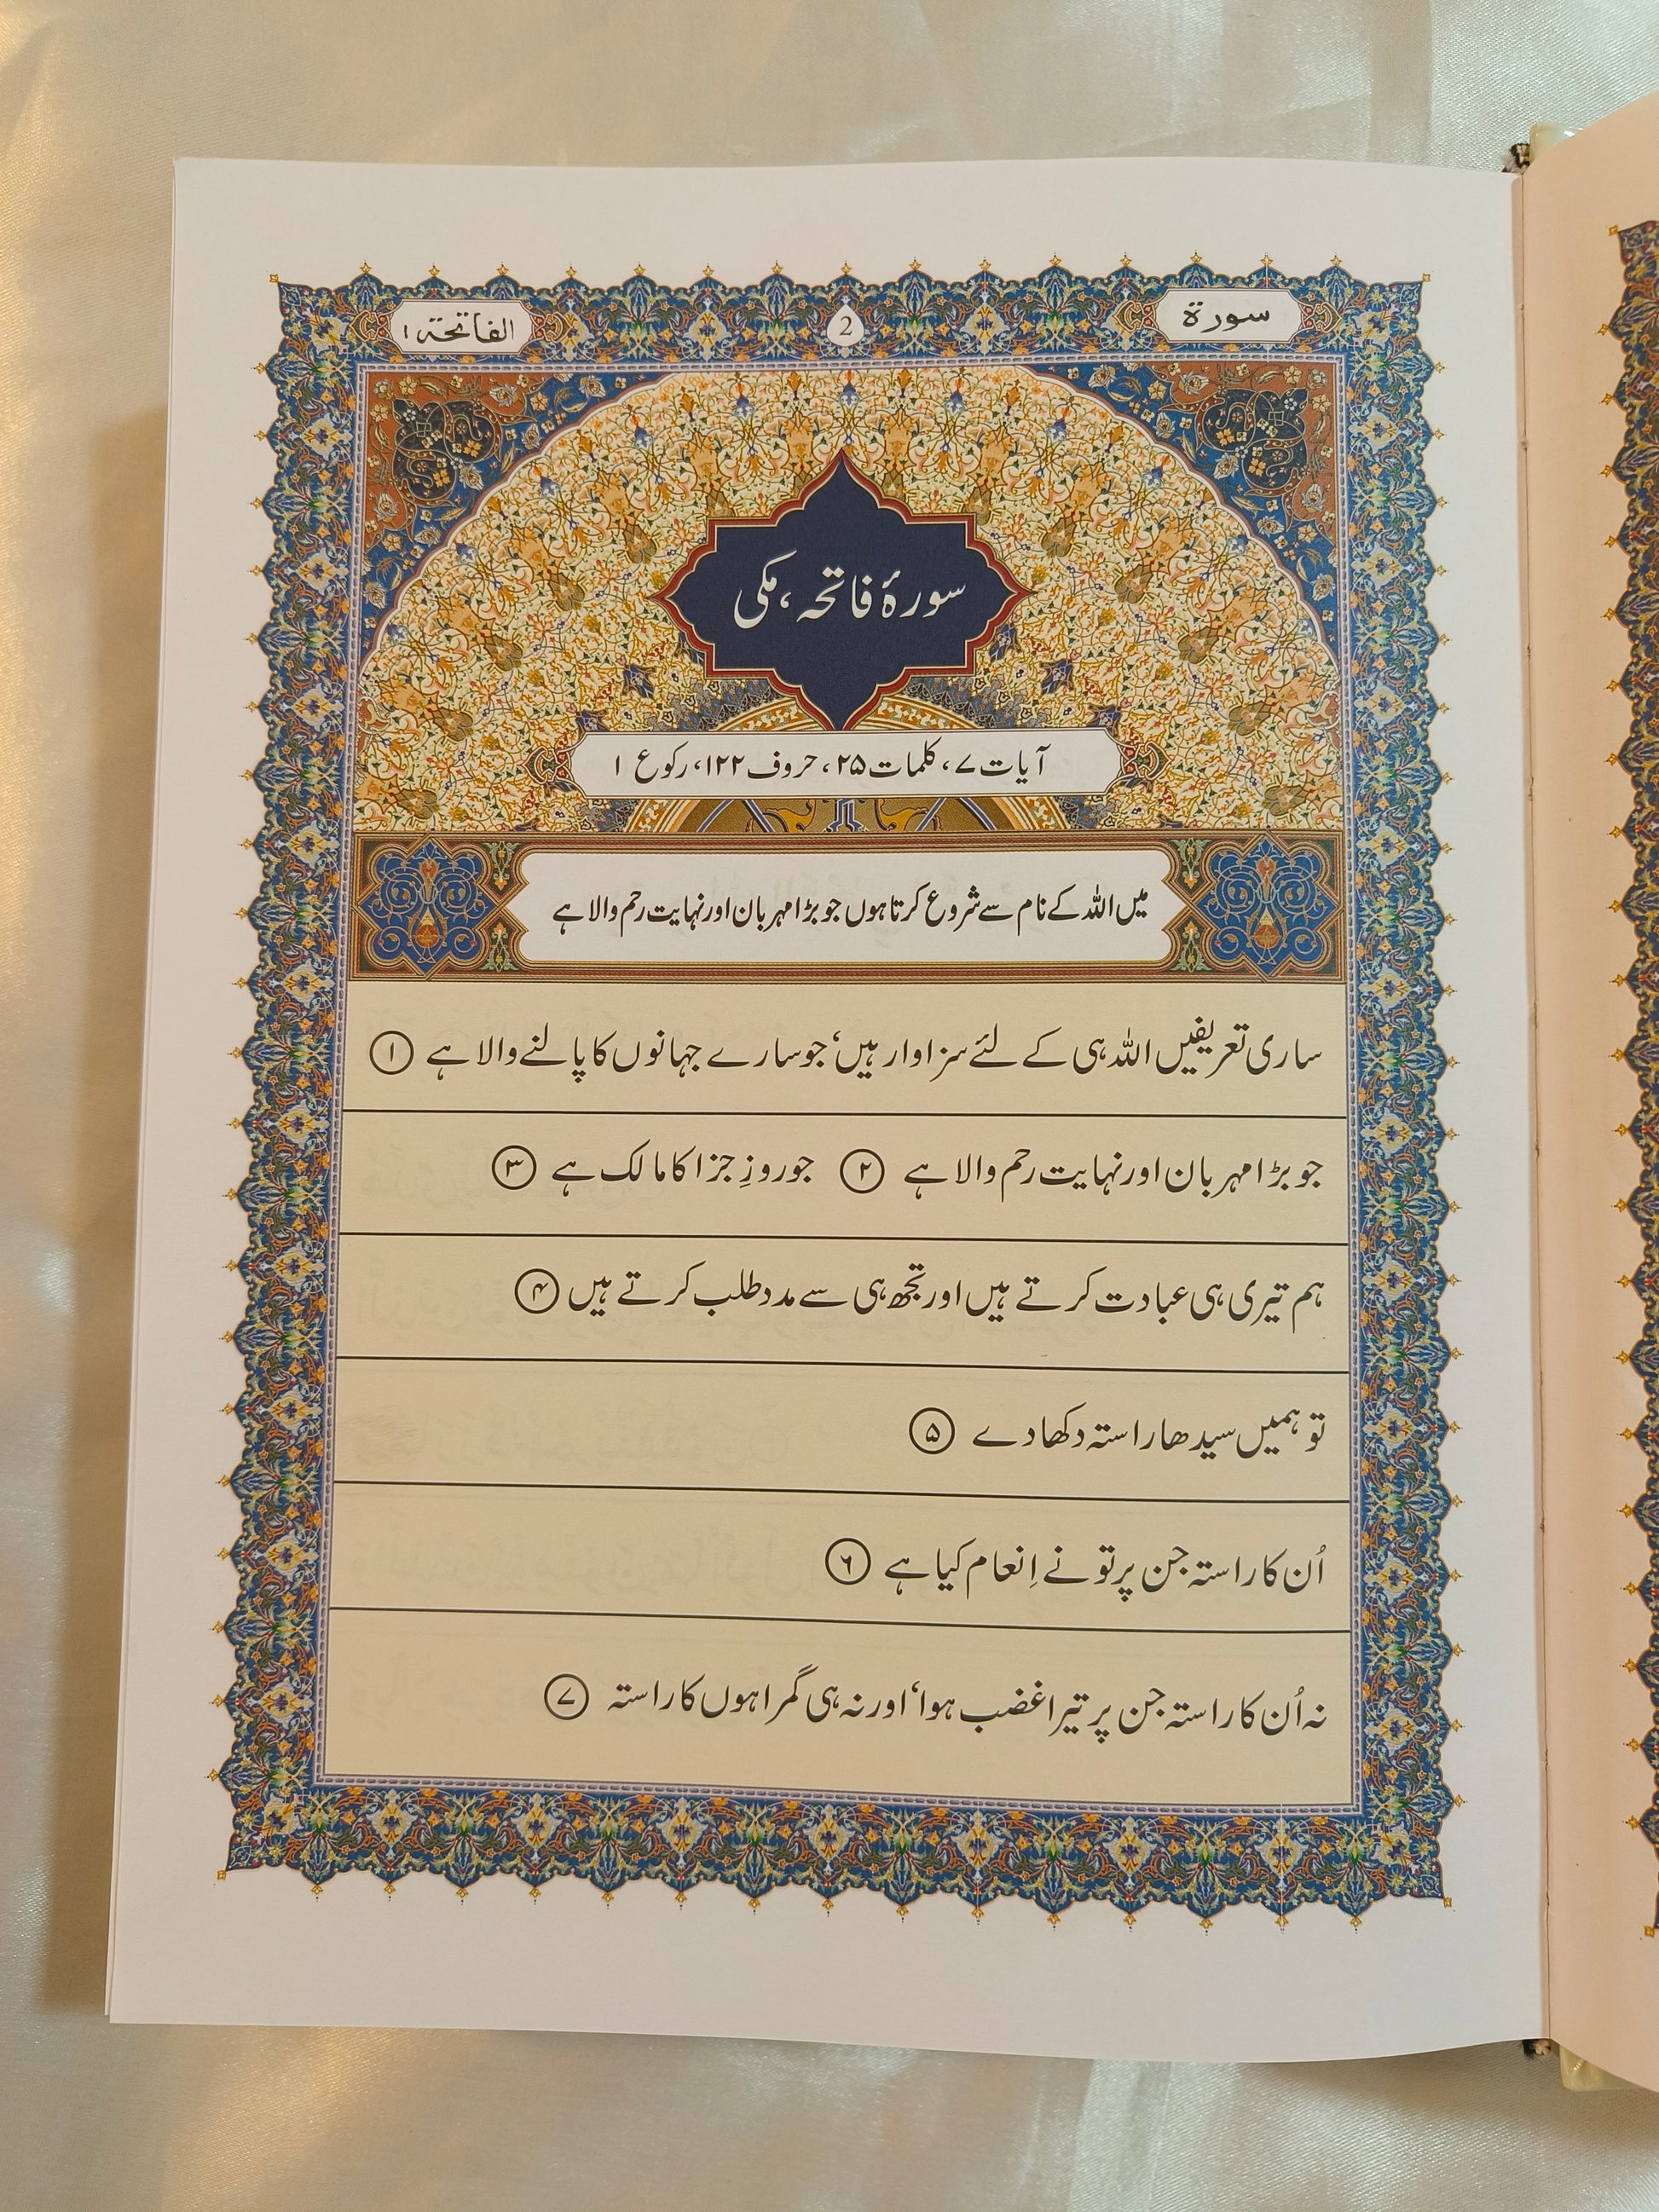 سورة
2
الفاتحة ۱
سورۂ فاتحہ، مکی
آیات ۷، کلمات ۲۵، حروف ۱۲۲، رکوع ۱
میں اللہ کے نام سے شروع کرتا ہوں جو بڑا مہربان اور نہایت رحم والا ہے
ساری تعریفیں اللہ ہی کے لئے سزاوار ہیں‘ جو سارے جہانوں کا پالنے والا ہے ۱
جو بڑا مہربان اور نہایت رحم والا ہے ۲ جو روزِ جزا کا مالک ہے ۳
ہم تیری ہی عبادت کرتے ہیں اور تجھ ہی سے مدد طلب کرتے ہیں ۴
تو ہمیں سیدھا راستہ دکھا دے ۵
اُن کا راستہ جن پر تو نے اِنعام کیا ہے ۶
نہ اُن کا راستہ جن پر تیرا غضب ہوا‘ اور نہ ہی گمراہوں کا راستہ ۷